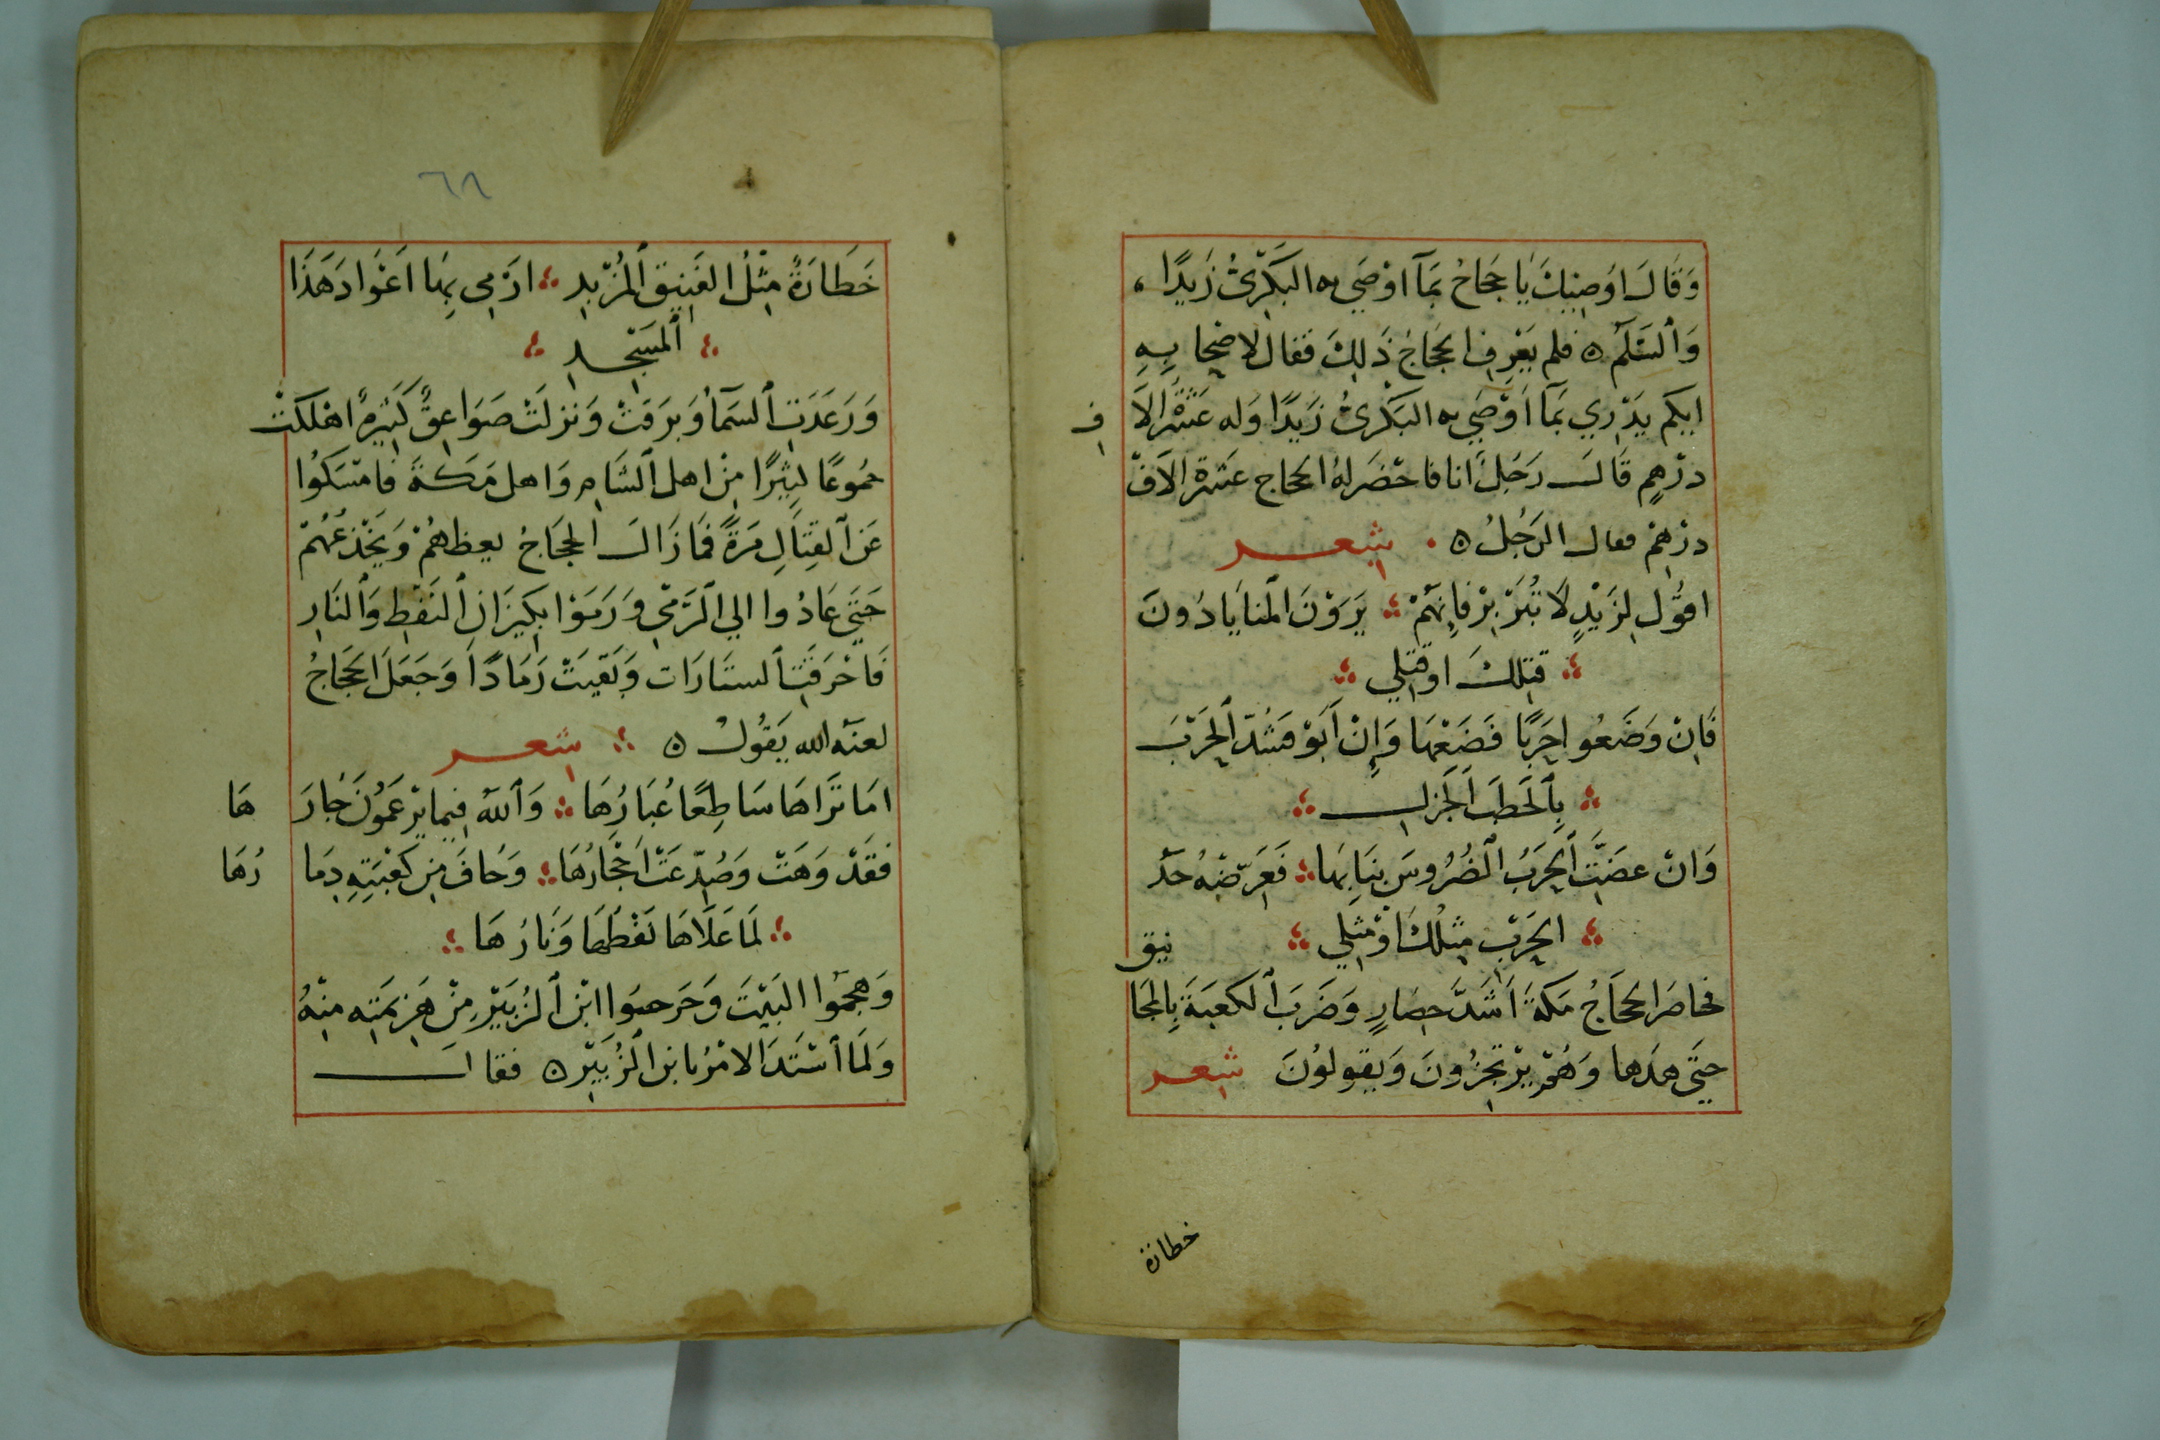 وَقَالَ اُوصِيكَ يَا حَجَاجُ بِمَا اَوْصَى به البَكْرِىُّ زَيْدًا،
وَالسَّلَمُ ٥ فلم يَعْرِفِ الحَجَاجُ ذَلِكَ فقال لاصْحابِهِ
ايكم يَدْرِي بِمَا اَوْصَى به البَكْرِىُّ زَيْدًا وَله عَشْرَةُ الاَ فِ
دِرْهِمٍ قَالَ رَجُلٌ انا فاحْضَرَ لهُ الحجاج عَشْرَة الاَفْ
دِرْهِمْ فقال الرَجُلُ ٥ . شعر
اقُولُ لِزَيْدٍ لَا تُبَرْبِرْ فَاِنَهُمْ ؞ يَرَوْنَ المَنايَا دُونَ
؞ قتِلِكَ اوقتِلِي ؞
فَاِنْ وَضَعُوا حَرْبًا فَضَعْهَا وَاِنْ اَبَوْ فَشُدَّ الحَرْبَ
؞ بِالحَطَبِ الجَزلِ ؞
وَانْ عضَتِ الحَرْبُ الضُرُوسَ بِنَابِهَا ؞ فَعَرِّضْهُ حدَ
؞ الحَرْبِ مِثلُكَ اَوْ مثِلِي ؞
فحاصَرَ الحجَاجُ مَكةَ اَشَدَّ حِصَارٍ وَضَرَبَ الكعبَةَ بِالمجَانيق
حتَى هدَها وَهُمْ يرْتجِزُونَ وَيقولُونَ شعر
خطارة
٦٨
خَطارَةً مِثْلُ الفَنِيقِ المُزْبِدِ ؞ ارْمِي بِهَا اعْوَادَ هَذَا
؞ المَسْجِدِ ؞
وَرَعَدَتِ السَمَآءُ وَبَرقَتْ وَنزلَتْ صَوَاعِقٌ كَثيرةٌ اهْلكتْ
جمُوعًا كثِيرًا مِنْ اهل الشَامِ وَاهل مَكةَ فامْسَكُوا
عَن القِتَالِ مَرَةً فمَا زَالَ الحجَاجُ يعظهُمْ وَيَخْدَعُهُمْ
حَتَى عَادُوا الي الرَمْي وَرَمَوْا بِكِيزَانِ النَفْطِ وَالنَارِ
فَاحْرَقتِ الستَارَات وَبَقيَتْ رَمَادًا وَجَعَلَ الحَجَاجُ
لعنَه الله يَقُولُ ٥ ؞ شعر
امَا تَرَاهَا سَاطِعًا غُبَارُهَا ؞ وَاللهُ فِيما يزعَمُونَ جَارَ هَا
فقَدْ وَهَتْ وَصُدِّعَتْ اَحْجَارُهَا ؞ وَحَافَ مِن كَعْبَتِهِ دِما رُهَا
؞ لمَا عَلَاهَا نَفْطُهَا وَنَارُهَا ؞
وَهَجَمُوا البَيْتَ وَ ابْن الزُبَيْرِ مِنْ هَزِيمَتِه مِنْهُ
وَلَمَا اشتَدَ الامْرُ بابن الزُبَيْرِ ٥ فقالَ